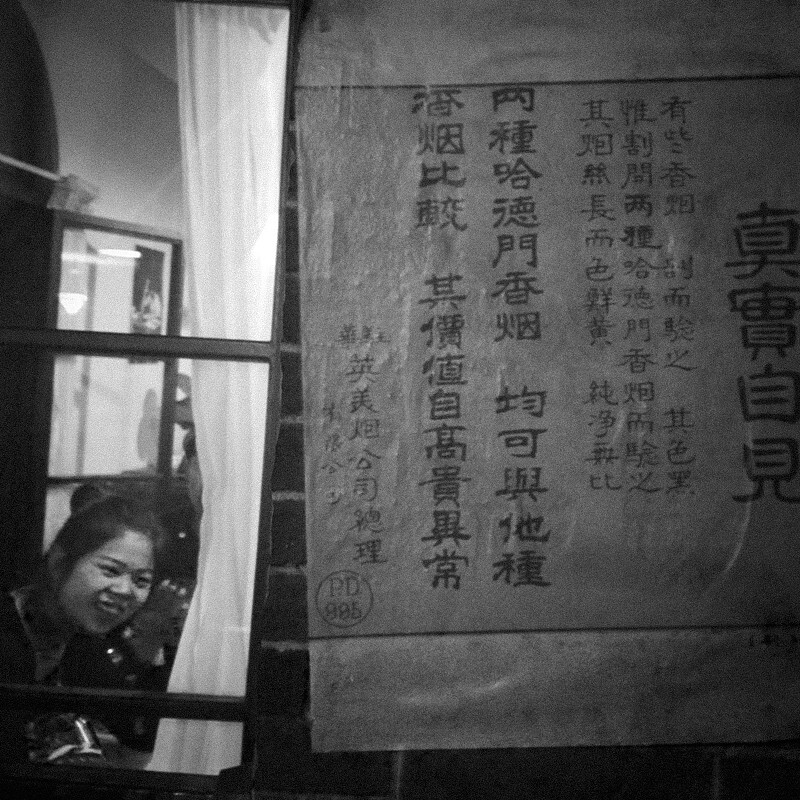 真實自見
有些香烟 剖而驗之 其色黑
惟割開两種哈德門香烟而驗之
其烟絲長而色鮮黄 純净無比
两種哈德門香烟 均可與他種
香烟比較 其價值自高貴異常
英美烟公司總理
有限公司
PD
995